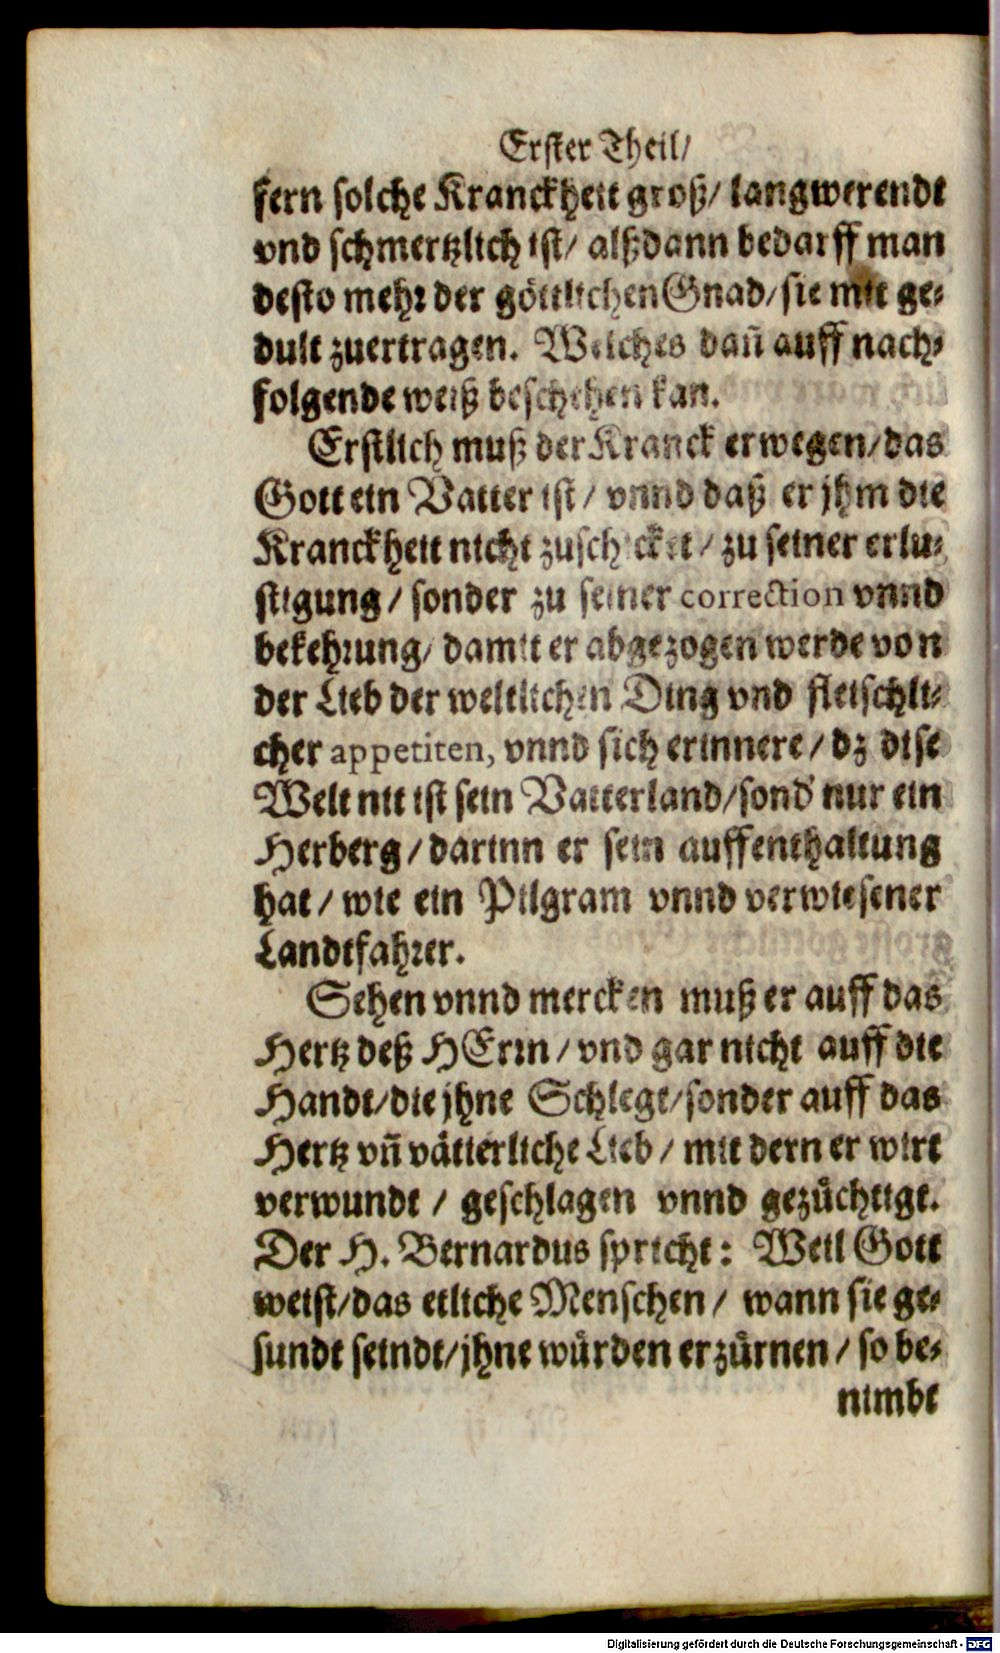 Erster Theil/
fern solche Kranckheit groß/ langwerendt
vnd schmertzlich ist/ alßdann bedarff man
desto mehr der göttlichen Gnad/ sie mit ge⸗
dult zuertragen. Welches dañ auff nach⸗
folgende weiß beschehen kan.
Erstlich muß der Kranck erwegen/ das
Gott ein Vatter ist/ vnnd daß er jhm die
Kranckheit nicht zuschicket/ zu seiner erlu⸗
stigung/ sonder zu seiner correction vnnd
bekehrung/ damit er abgezogen werde von
der Lieb der weltlichen Ding vnd fleischli⸗
cher appetiten, vnnd sich erinnere/ dz dise
Welt nit ist sein Vatterland/ sond' nur ein
Herberg/ darinn er sein auffenthaltung
hat/ wie ein Pilgram vnnd verwiesener
Landtfahrer.
Sehen vnnd mercken muß er auff das
Hertz deß HErrn/ vnd gar nicht auff die
Handt/ die jhne Schlegt/ sonder auff das
Hertz vñ vätterliche Lieb/ mit dern er wirt
verwundt/ geschlagen vnnd gezüchtigt.
Der H. Bernardus spricht: Weil Gott
weist/ das etliche Menschen/ wann sie ge⸗
sundt seindt/ jhne würden erzürnen/ so be⸗
nimbt
Digitalisierung gefördert durch die Deutsche Forschungsgemeinschaft - DFG